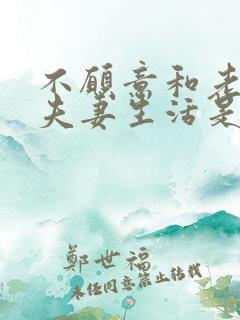 不愿意和老
夫妻生活是
鄭世福
未经同意禁止转载